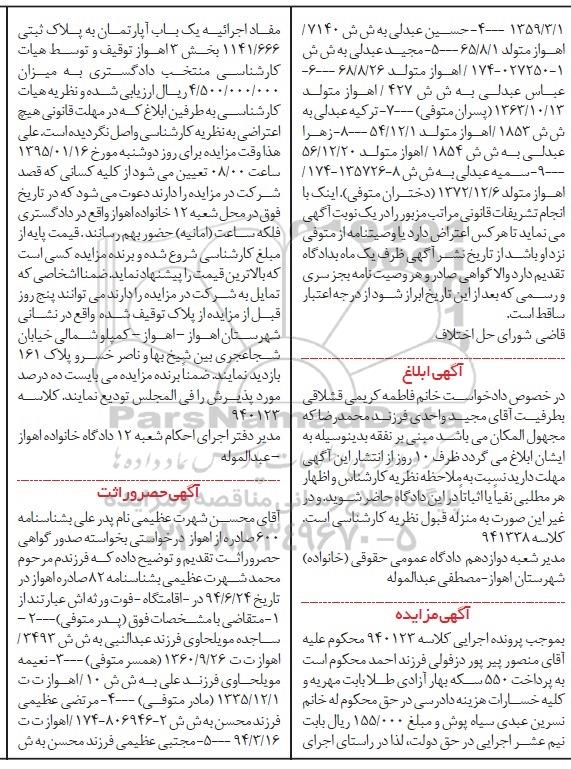 ۱۳۵۹/۳/۱ ---۴- حسین عبدلی به ش ش ۷۱۴۰ /
اهواز متولد ۶۵/۸/۱ ---۵- مجید عبدلی به ش ش
۱۷۴-۰۲۷۲۵۰-۱ / اهواز متولد ۶۸/۸/۲۶ ---۶-
عباس عبدلی به ش ش ۴۲۷ / اهواز متولد
۱۳۶۳/۱۰/۱۳ (پسران متوفی) ---۷- ترکیه عبدلی به
ش ش ۱۸۵۳ / اهواز متولد ۵۴/۱۲/۱ ---۸- زهرا
عبدلی به ش ش ۱۸۵۴ / اهواز متولد ۵۶/۱۲/۲۰
---۹- سمیه عبدلی به ش ش ۸-۱۳۵۷۲۶-۱۷۴ /
اهواز متولد ۱۳۷۲/۱۲/۶ (دختران متوفی). اینک با
انجام تشریفات قانونی مراتب مزبور را در یک نوبت آگهی
می نماید تا هر کس اعتراض دارد یا وصیتنامه از متوفی
نزد او باشد از تاریخ نشر آگهی ظرف یک ماه بدادگاه
تقدیم دارد والا گواهی صادر و هر وصیت نامه بجز سری
و رسمی که بعد از این تاریخ ابراز شود از درجه اعتبار
ساقط است.
قاضی شورای حل اختلاف
آگهی ابلاغ
در خصوص دادخواست خانم فاطمه کریمی قشلاقی
بطرفیت آقای مجید واحدی فرزند محمدرضا که
مجهول المکان می باشد مبنی بر نفقه بدینوسیله به
ایشان ابلاغ می گردد ظرف ۱۰ روز از انتشار این آگهی
مهلت دارید نسبت به ملاحظه نظریه کارشناس و اظهار
هر مطلبی نفیاً یا اثباتاً در این دادگاه حاضر شوید و در
غیر این صورت به منزله قبول نظریه کارشناسی است.
کلاسه ۹۴۱۳۳۸
مدیر شعبه دوازدهم دادگاه عمومی حقوقی (خانواده)
شهرستان اهواز-مصطفی عبدالموله
آگهی مزایده
بموجب پرونده اجرایی کلاسه ۹۴۰۱۲۳ محکوم علیه
آقای منصور پیر پور دزفولی فرزند احمد محکوم است
به پرداخت ۵۵۰ سکه بهار آزادی طلا بابت مهریه و
کلیه خسارات هزینه دادرسی در حق محکوم له خانم
نسرین عبدی سیاه پوش و مبلغ ۱۵۵/۰۰۰ ریال بابت
نیم عشر اجرایی در حق دولت، لذا در راستای اجرای
مفاد اجرائیه یک باب آپارتمان به پلاک ثبتی
۱۱۴۱/۶۶۶ بخش ۳ اهواز توقیف و توسط هیات
کارشناسی منتخب دادگستری به میزان
۴/۵۰۰/۰۰۰/۰۰۰ ریال ارزیابی شده و نظریه هیات
کارشناسی به طرفین ابلاغ که در مهلت قانونی هیچ
اعتراضی به نظریه کارشناسی واصل نگردیده است. علی
هذا وقت مزایده برای روز دوشنبه مورخ ۱۳۹۵/۰۱/۱۶
ساعت ۰۸/۰۰ تعیین می شود از کلیه کسانی که قصد
شرکت در مزایده را دارند دعوت می شود که در تاریخ
فوق در محل شعبه ۱۲ خانواده اهواز واقع در دادگستری
فلکه ساعت (امانیه) حضور بهم رسانند. قیمت پایه از
مبلغ کارشناسی شروع شده و برنده مزایده کسی است
که بالاترین قیمت را پیشنهاد نماید. ضمنا اشخاصی که
تمایل به شرکت در مزایده را دارند می توانند پنج روز
قبل از مزایده از پلاک توقیف شده واقع در نشانی
شهرستان اهواز -اهواز- کمپلو شمالی خیابان
شجاعجری بین شیخ بها و ناصر خسرو پلاک ۱۶۱
بازدید نمایند. ضمناً برنده مزایده می بایست ده درصد
مورد پذیرش را فی المجلس تودیع نمایند. کلاسه
۹۴۰۱۲۳
مدیر دفتر اجرای احکام شعبه ۱۲ دادگاه خانواده اهواز
-عبدالموله
آگهی حصر وراثت
آقای محسن شهرت عظیمی نام پدر علی بشناسنامه
۶۰۰ صادره از اهواز درخواستی بخواسته صدور گواهی
حصر وراثت تقدیم و توضیح داده که فرزندم مرحوم
محمد شهرت عظیمی بشناسنامه ۸۲ صادره اهواز در
تاریخ ۹۴/۶/۲۴ در -اقامتگاه -فوت ورثه اش عبارتند از
۱- متقاضی با مشخصات فوق (پدر متوفی)---۲-
ساجده مویلحاوی فرزند عبدالنبی به ش ش ۳۴۹۳ /
اهواز ت ت ۱۳۶۰/۹/۲۶ (همسر متوفی) ---۳- نعیمه
مویلحاوی فرزند علی به ش ش ۱۰ / اهواز ت ت
۱۳۳۵/۱۲/۱ (مادر متوفی) ---۴- مرتضی عظیمی
فرزند محسن به ش ش ۲-۸۰۶۹۴۶-۱۷۴ / اهواز ت ت
۹۴/۳/۱۶ ---۵- مجتبی عظیمی فرزند محسن به ش
ParsNamadData
۰۲۱-۸۸۳۴۹۶۷۰-۵